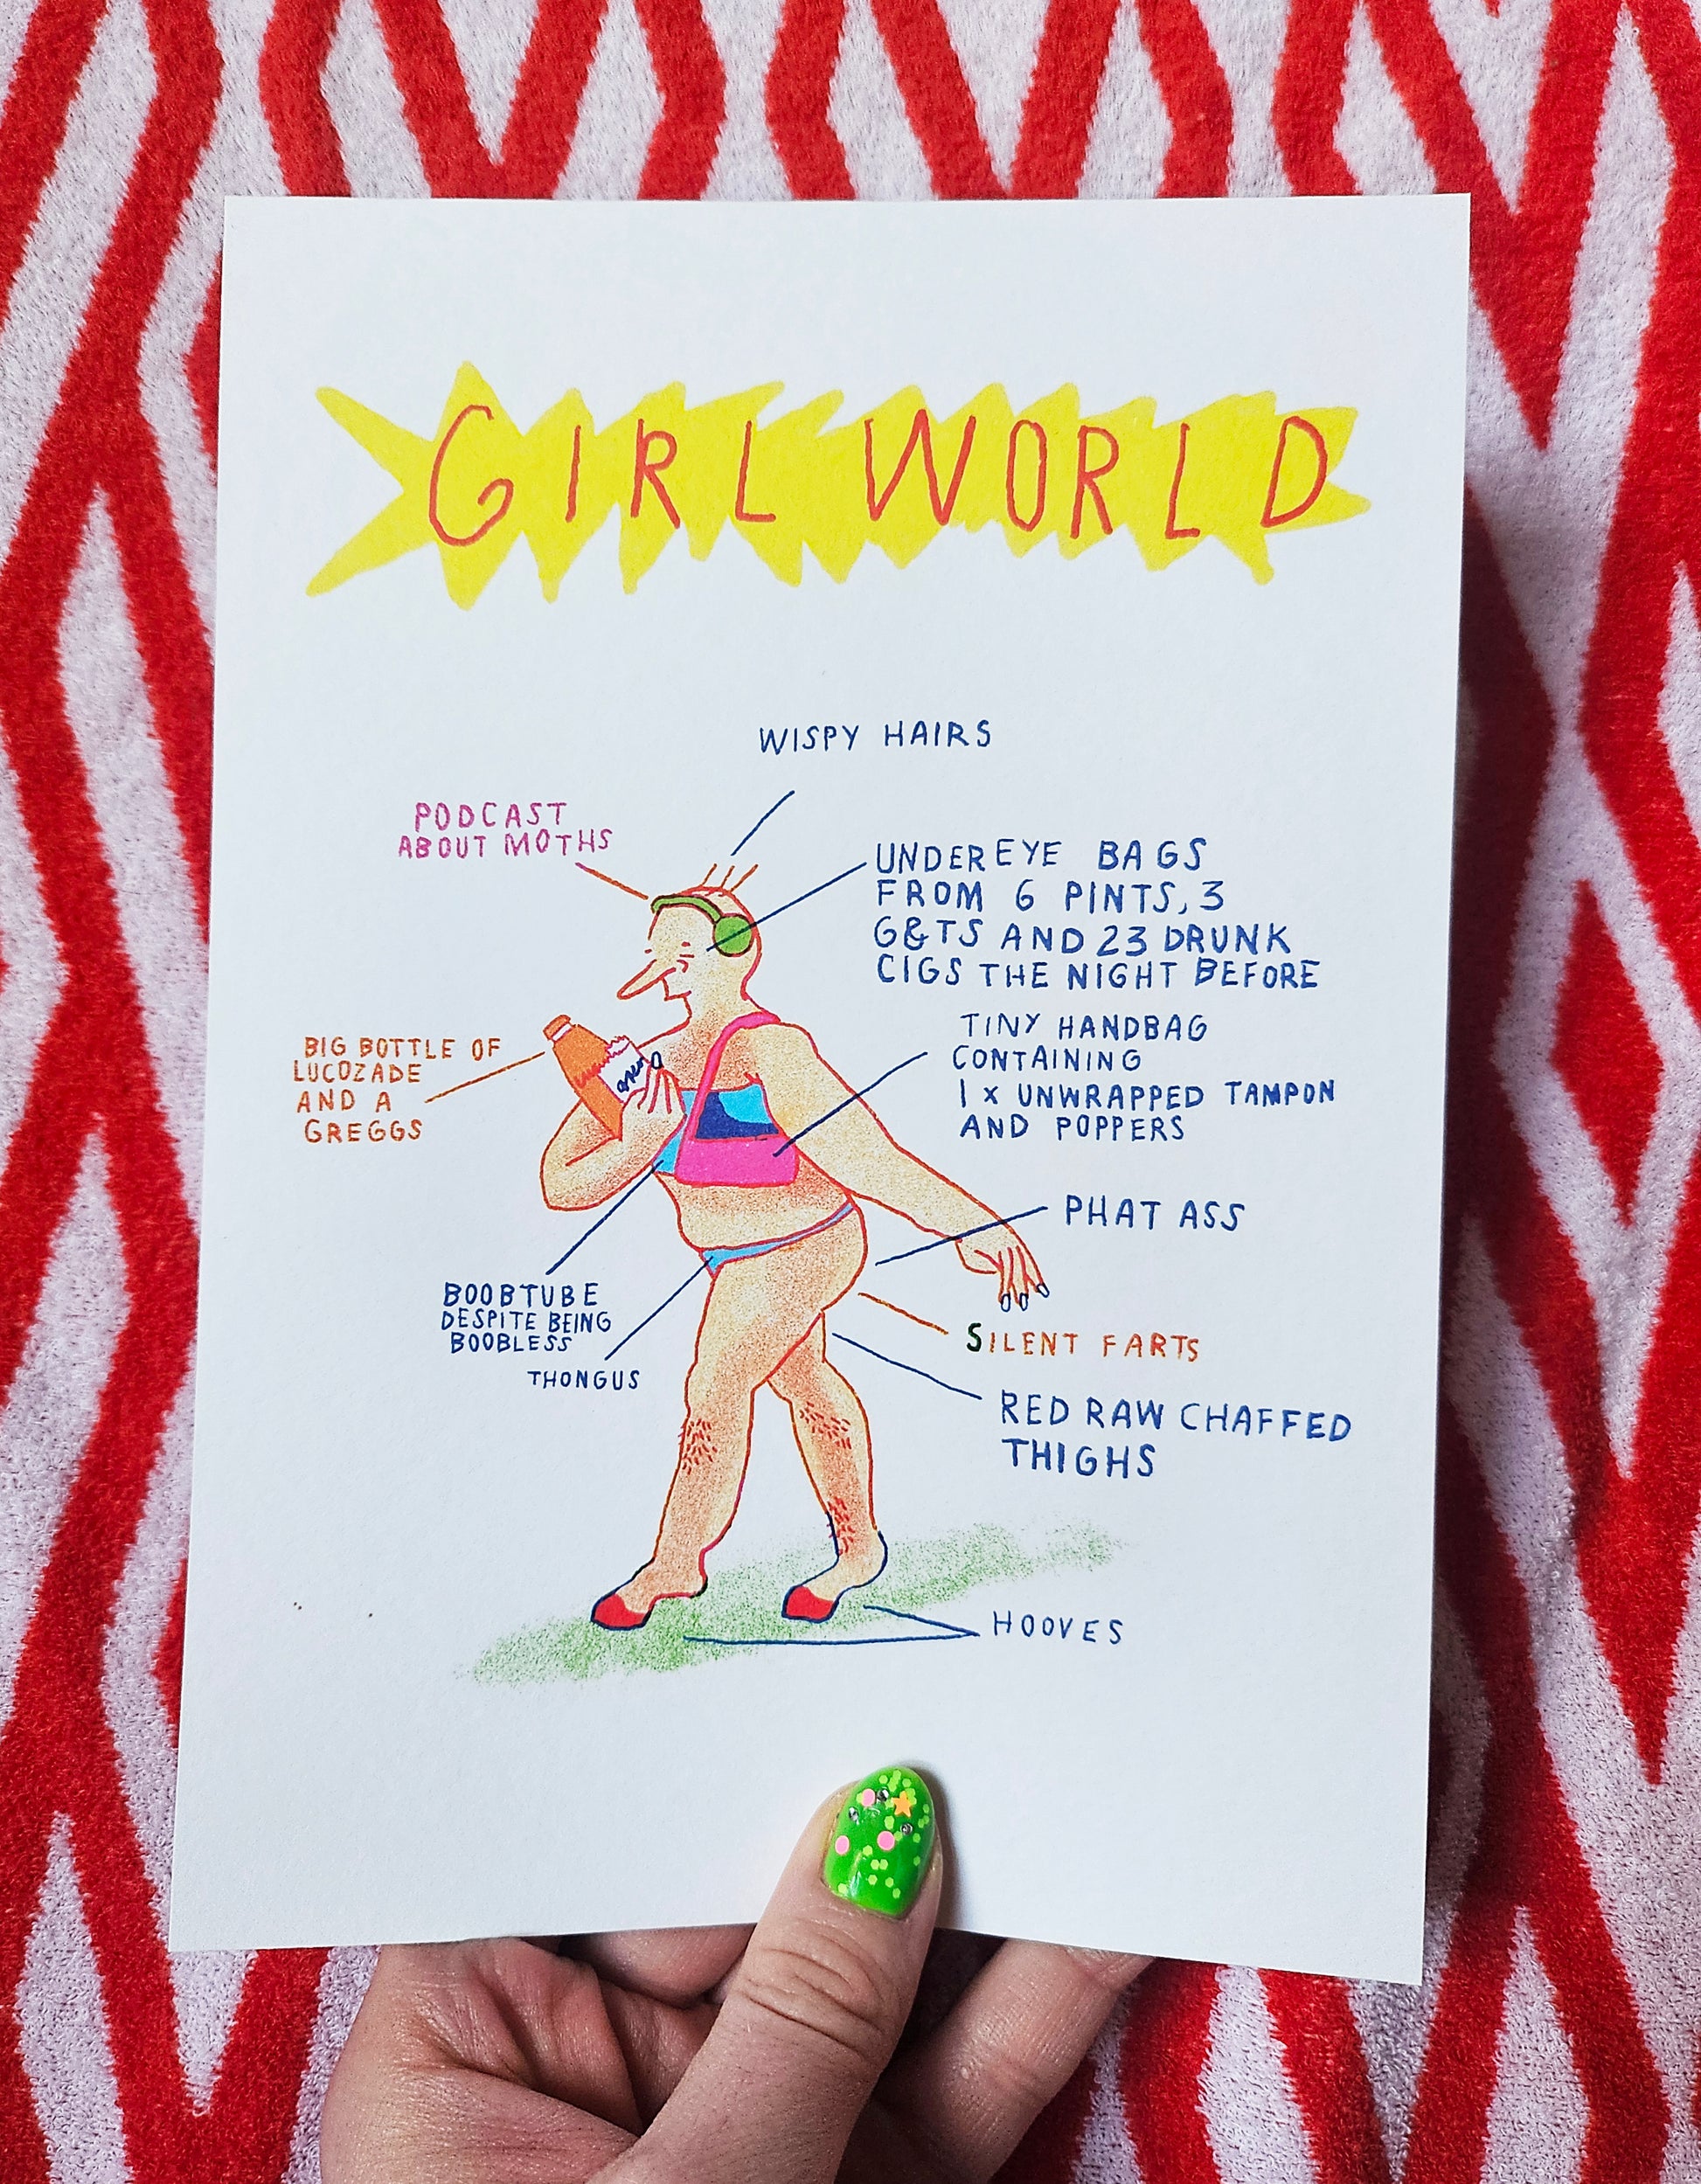 GIRL WORLD
WISPY HAIRS
PODCAST
ABOUT MOTHS
UNDEREYE BAGS
FROM 6 PINTS, 3
G&TS AND 23 DRUNK
CIGS THE NIGHT BEFORE
BIG BOTTLE OF
LUCOZADE
AND A
GREGGS
TINY HANDBAG
CONTAINING
1 X UNWRAPPED TAMPON
AND POPPERS
PHAT ASS
BOOBTUBE
DESPITE BEING
BOOBLESS
THONGUS
SILENT FARTS
RED RAW CHAFFED
THIGHS
HOOVES